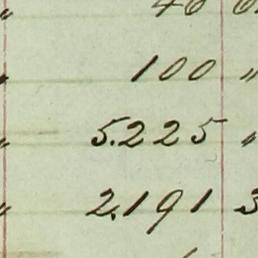 " 40
" 100 "
" 5.225 "
" 2.191 3